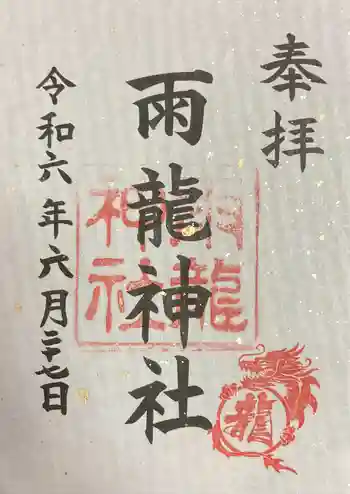 奉拝
雨龍神社
雨龍
神社
令和六年六月二十七日
龍